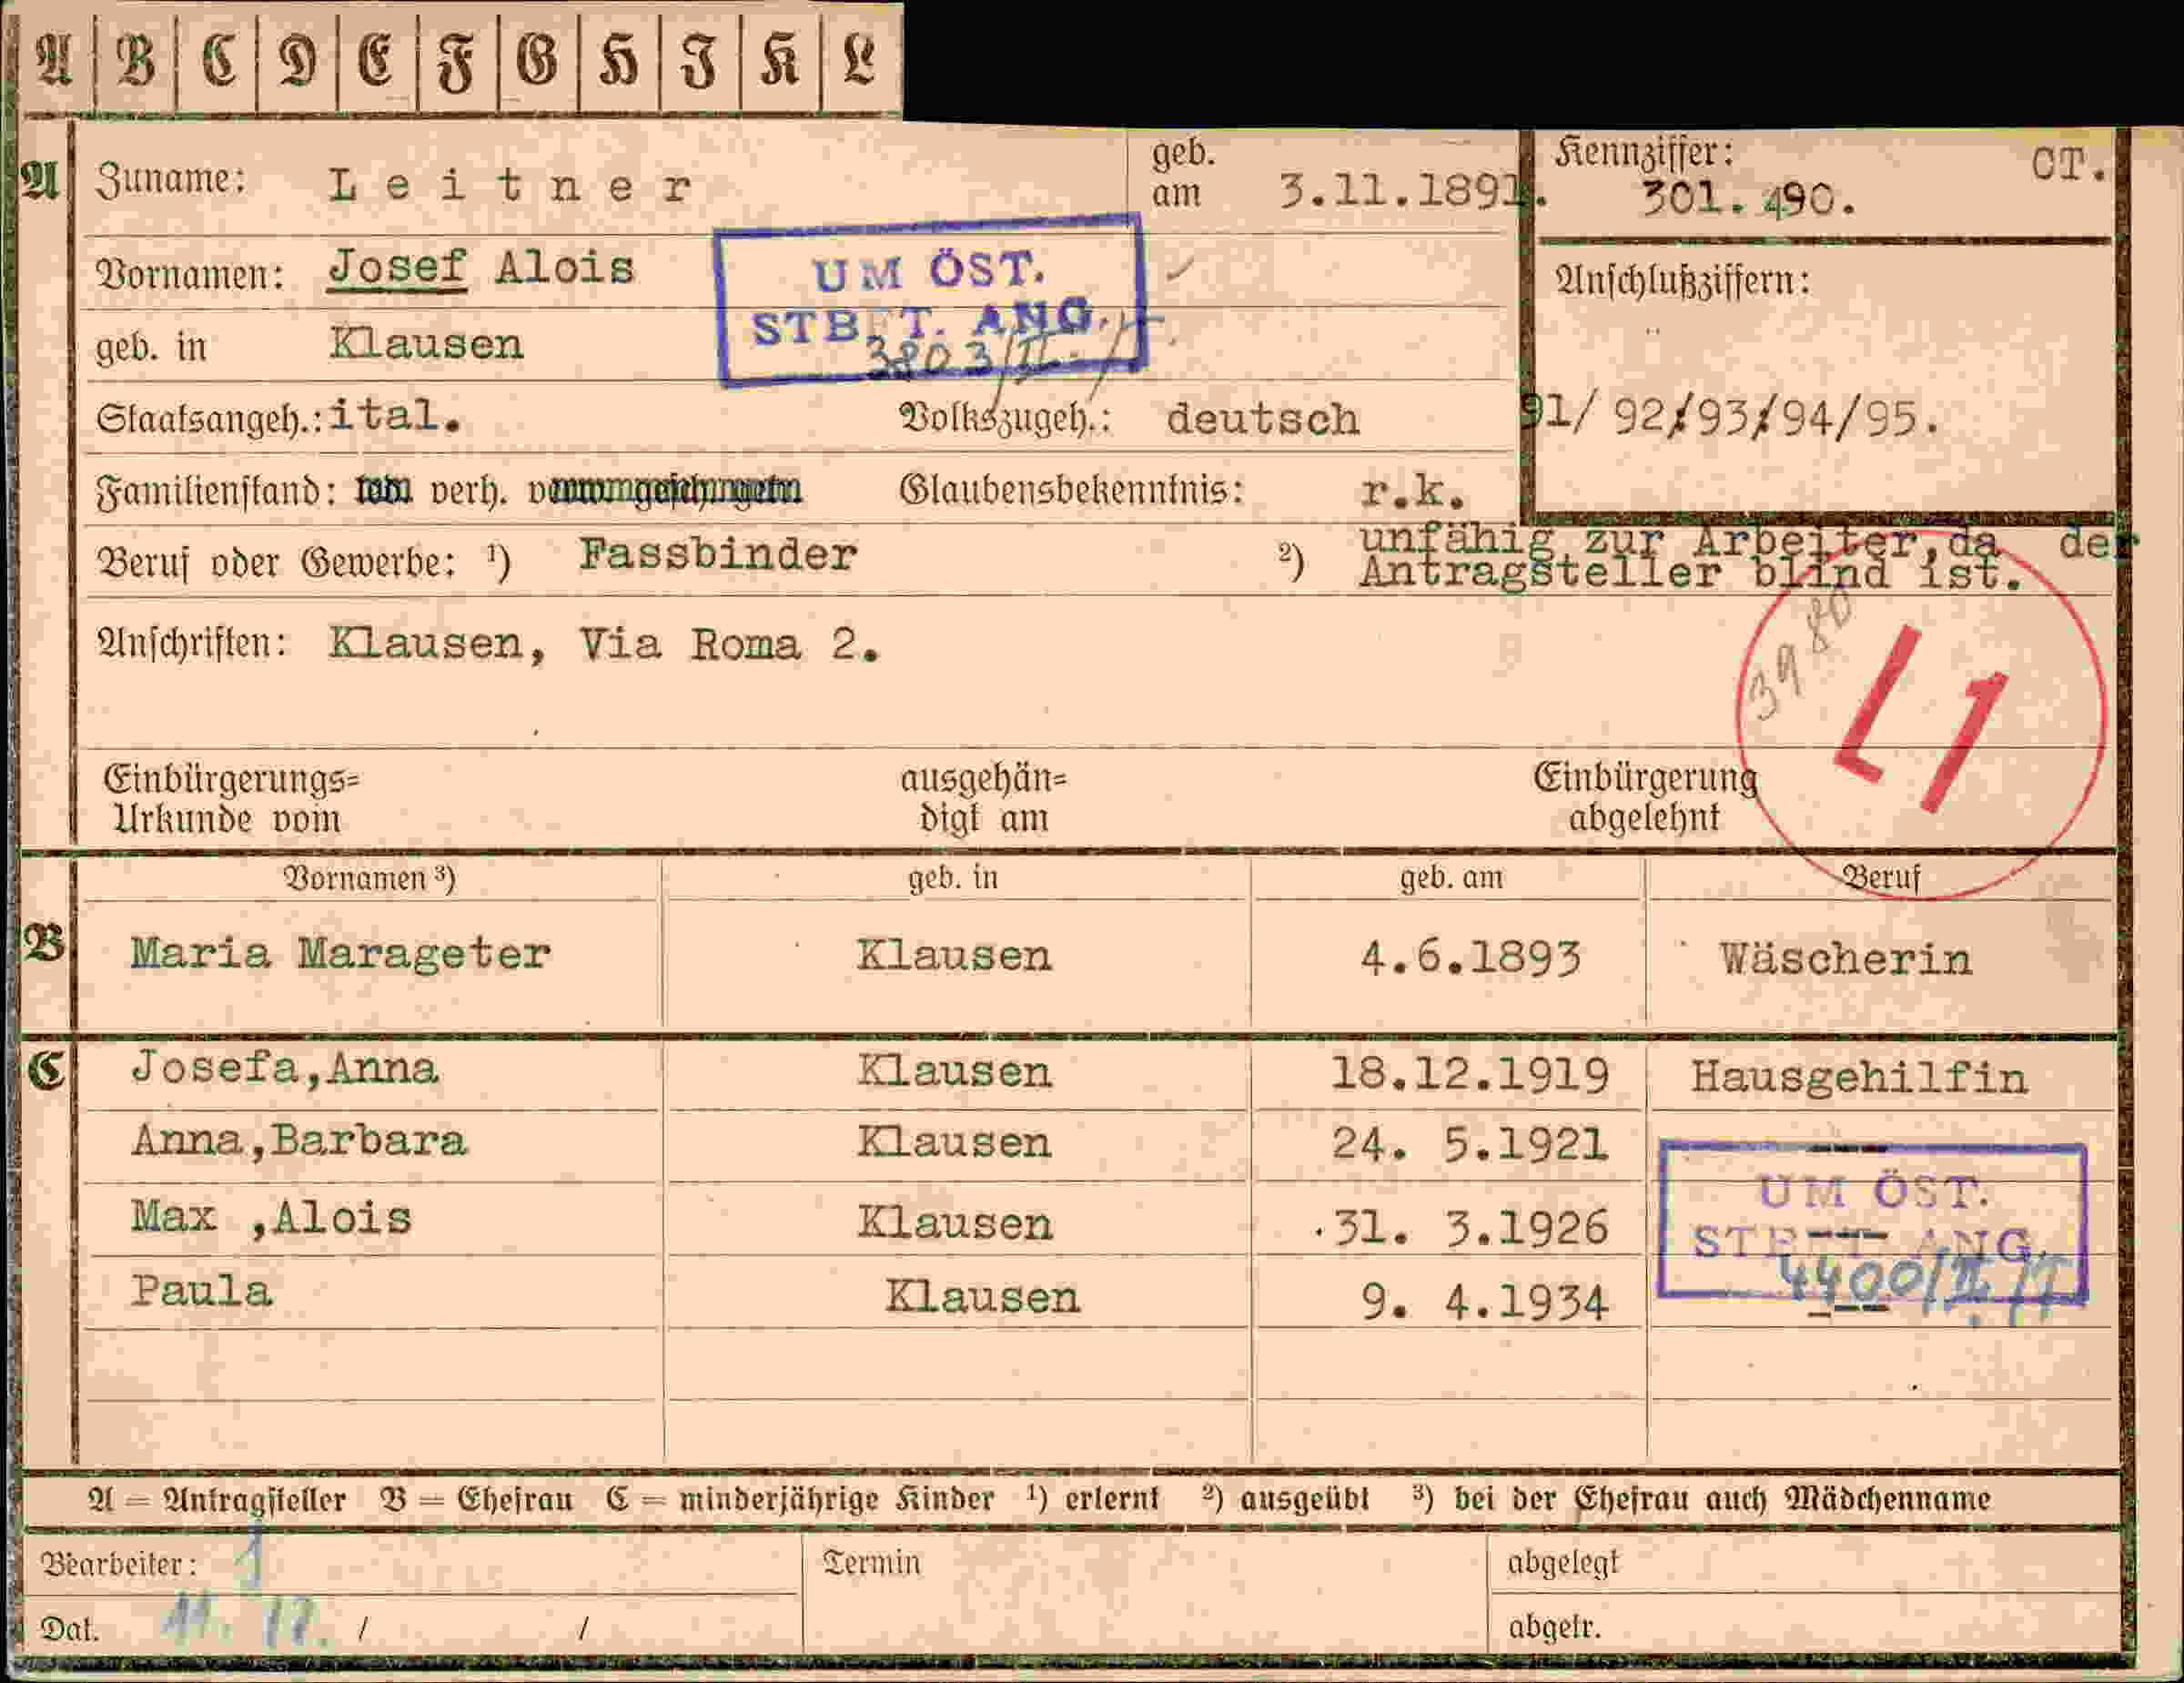 A B C D E F G H I K L
A Zuname: Leitner geb. am 3.11.1891. Kennziffer: 301.490. OT.
Vornamen: Josef Alois
UM ÖST.
STBET. ANG.
3803/II
geb. in Klausen
Anschlußziffern:
91/ 92/93/94/95.
Staatsangeh.: ital. Volkszugeh.: deutsch
Familienstand: verh. Glaubensbekenntnis: r.k.
Beruf oder Gewerbe: ¹) Fassbinder ²) unfähig zur Arbeiter,da der
Antragsteller blind ist.
Anschriften: Klausen, Via Roma 2.
3980
L1
Einbürgerungs=
Urkunde vom
ausgehän=
digt am
Einbürgerung
abgelehnt
Vornamen ³) geb. in geb. am Beruf
B Maria Marageter Klausen 4.6.1893 Wäscherin
C Josefa,Anna Klausen 18.12.1919 Hausgehilfin
Anna,Barbara Klausen 24. 5.1921 ---
Max ,Alois Klausen 31. 3.1926 ---
Paula Klausen 9. 4.1934 ---
UM ÖST.
ANG.
4400/II
A = Antragsteller B = Ehefrau C = minderjährige Kinder ¹) erlernt ²) ausgeübt ³) bei der Ehefrau auch Mädchenname
Bearbeiter: 1 Termin abgelegt
Dat. / / abgetr.